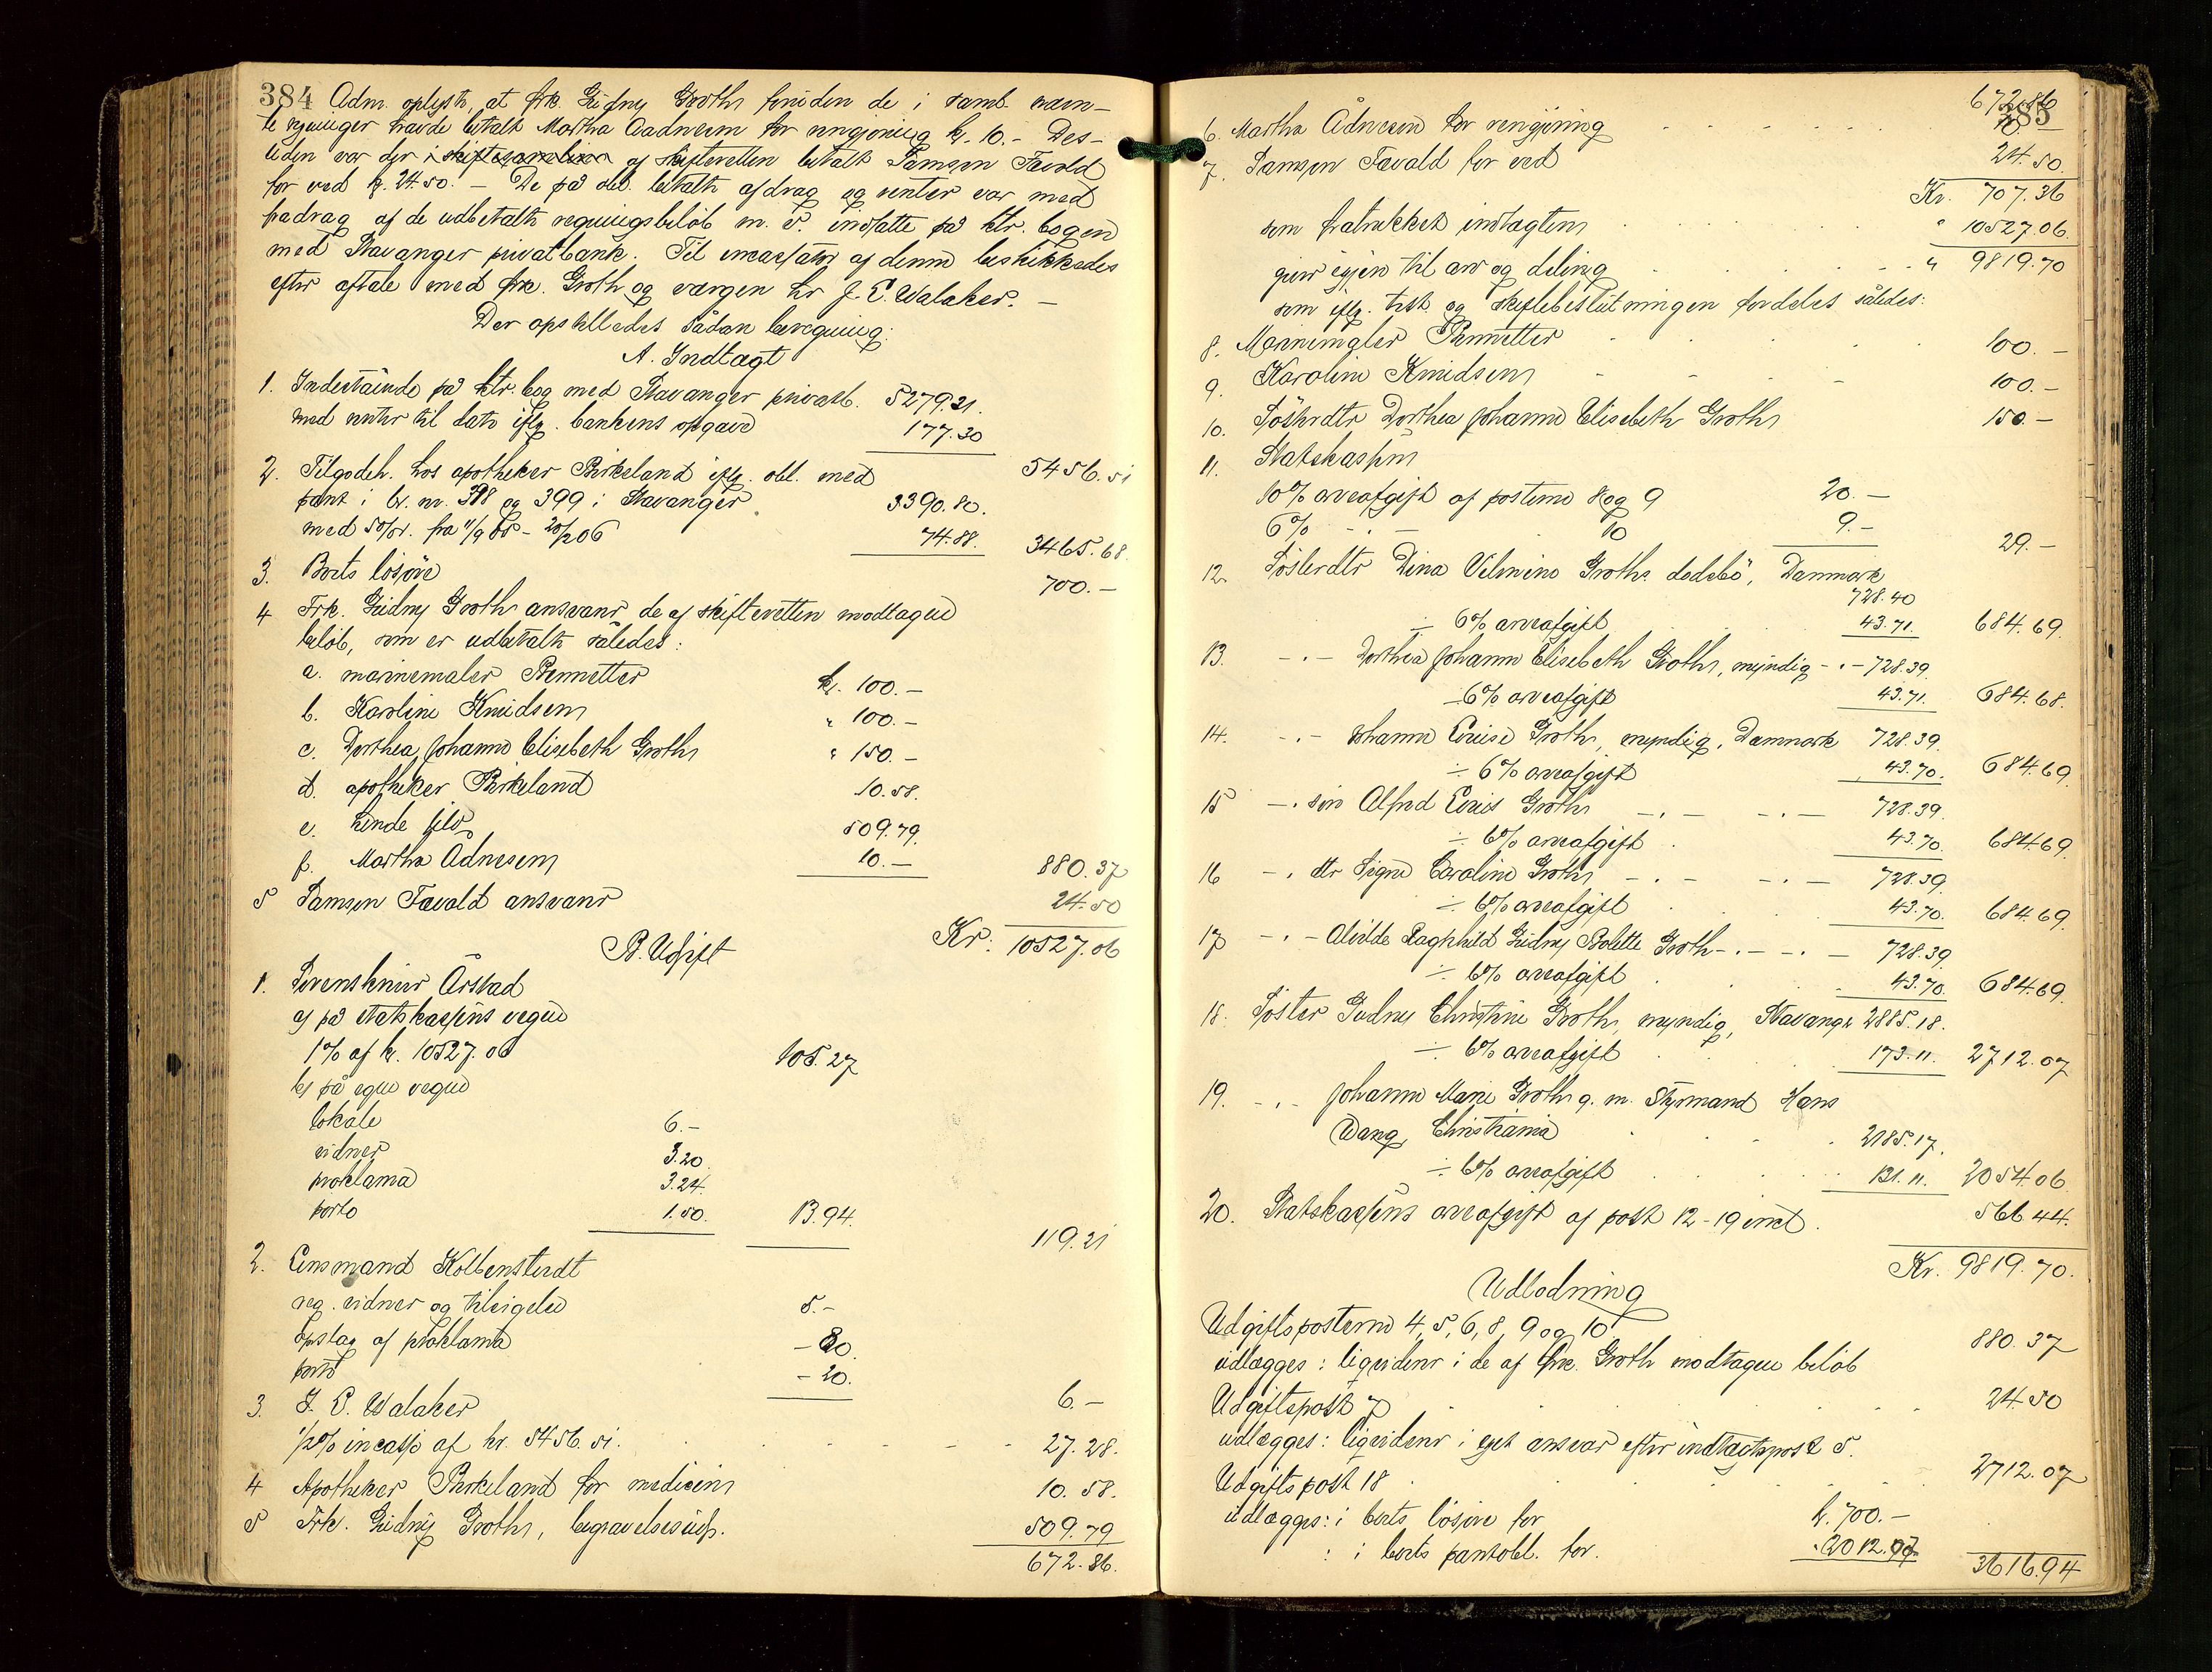 384 Adm. oplyste, at frk. Gudny Groth foruden de i saml. nævn-
te regninger havde betalt Martha Aadnesen for rengjøring kr. 10.- Des-
uden var der i skiftesamlinen af skifteretten betalt Samson Favold
for ved kr. 24.50. – De på obl. betalte afdrag og renter var med
fradrag af de udbetalte regningsbeløb m. v. indsatte på ktr. bogen
med Stavanger privatbank. Til incassator af denne beskikkedes
efter aftale med frk. Groth og værgen hr J. E. Walaker. –
Der opstilledes sådan beregning:
A. Indtægt
1. Indestående på ktr. bog med Stavanger privatb. 5279.21.
med renter til dato iflg. bankens opgave 177.30
5456.51
2. Tilgodeh. hos apotheker Birkeland iflg. obl. med
pant i br. nr. 398 og 399 i Stavanger 3390.80.
med 5% r. fra 11/9 05 – 20/2 06 74.88. 3465.68
3. Boets løsøre 700.–
4 Frk. Gudny Groths ansvar, de af skifteretten modtagne
beløb, som er udbetalt således:
a. marinemaler Bennetter kr. 100.–
b. Karoline Knudsen " 100.–
c. Dorthea Johanne Elisebeth Groth " 150.–
d. apotheker Birkeland 10.58.
e. hende selv 509.79.
f. Martha Adnesen 10.– 880.37
5 Samson Favold ansvar 24.50
Kr. 10527.06
B. Udgift
1. Sorenskriver Årstad
a) på statskassens vegne
1% af kr. 10527.06 105.27
b) på egne vegne
lokale 6.–
vidner 3.20
proklama 3.24.
porto 1.50. 13.94.
119.21
2. Lensmand Kolbenstvedt
reg. vidner og tilsigelse 5.–
opslag af proklama – 80.
porto – 20.
6.–
3. J. E. Walaker
1/2% incasso af kr. 5456.51. 27.28.
4 Apotheker Birkeland for medicin 10.58.
5 Frk. Gudny Groth, begravelsesudg. 509.79
672.86.
385
672.86
6. Martha Ådnesen for rengjøring 10
7. Samson Favold for ved 24.50.
Kr. 707.36
som fratrukket indtægten " 10527.06.
giver igjen til arv og deling " 9819.70
som iflg. test. og skiftebeslutningen fordeles således:
8. Marinemaler Bennetter 100.–
9. Karoline Knudsen 100.–
10. Søsterdtr Dorthea Johanne Elisebeth Groth 150.–
11. Statskassen
10% arveafgift af posterne 8 og 9 20.–
6% -.- 10 9.–
29.–
12. Søsterdtr Dina Velmine Groths dødsbo, Danmark
728.40
÷ 6% arveafgift 43.71. 684.69.
13. -.- Dorthea Johanne Elisebeth Groth, myndig -.- 728.39.
÷ 6% arveafgift 43.71. 684.68.
14. -.- Johanne Louise Groth, myndig, Danmark 728.39.
÷ 6% arveafgift 43.70. 684.69
15 -.- søn Alfred Louis Groth -.- -.- 728.39.
÷ 6% arveafgift 43.70. 684.69.
16 -.- dtr Signe Caroline Groth -.- -.- 728.39.
÷ 6% arveafgift 43.70. 684.69.
17 -.- Alvilde Ragnhild Gudny Bolette Groth -.- -.- 728.39
÷ 6% arveafgift 43.70. 684.69.
18. Søster Gudny Christine Groth, myndig, Stavanger 2885.18.
÷ 6% arveafgift 173.11. 2712.07
19. -.- Johanne Marie Groth g. m. Styrmand Hans
Wang, Christiania 2185.17.
÷ 6% arveafgift 131.11. 2054.06
20. Statskassens arveafgift af post 12-19 incl. 566.44.
Kr. 9819.70.
Udlodning
Udgiftsposterne 4, 5, 6, 8, 9 og 10 880.37
udlægges: liqvidenr i de af frk. Groth modtagne beløb
Udgiftspost 7 24.50
udlægges: liqvidenr i eget ansvar efter indtægtspost 5.
Udgiftspost 18 2712.07
udlægges: i boets løsøre for kr. 700.–
: i boets pantobl. for. " 2012.07
3616.94